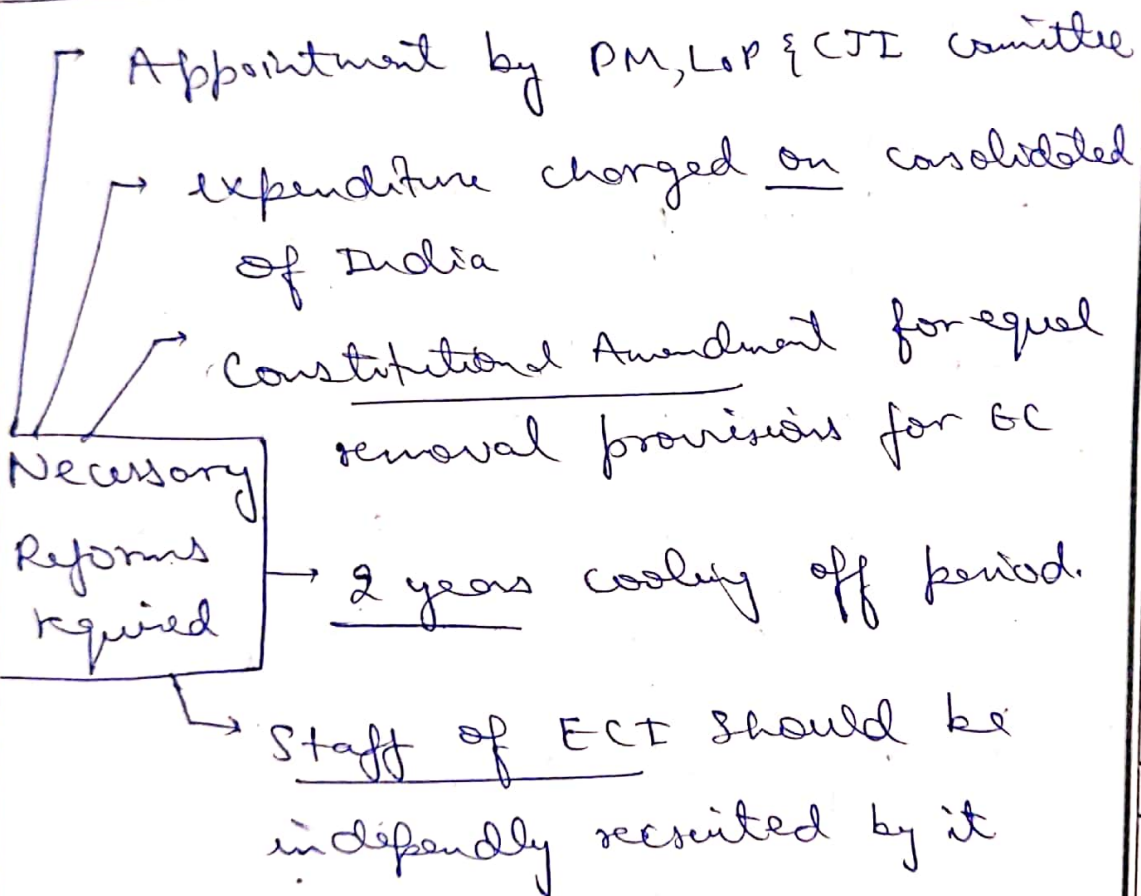 Appointment by PM, LoP & CJI comittee
expenditure charged on consolidated
of India
Constitutional Amendment for equal
removal provisions for EC
Necessary
Reforms
required
2 years cooling off period.
Staff of ECI should be
indepenndly recruited by it